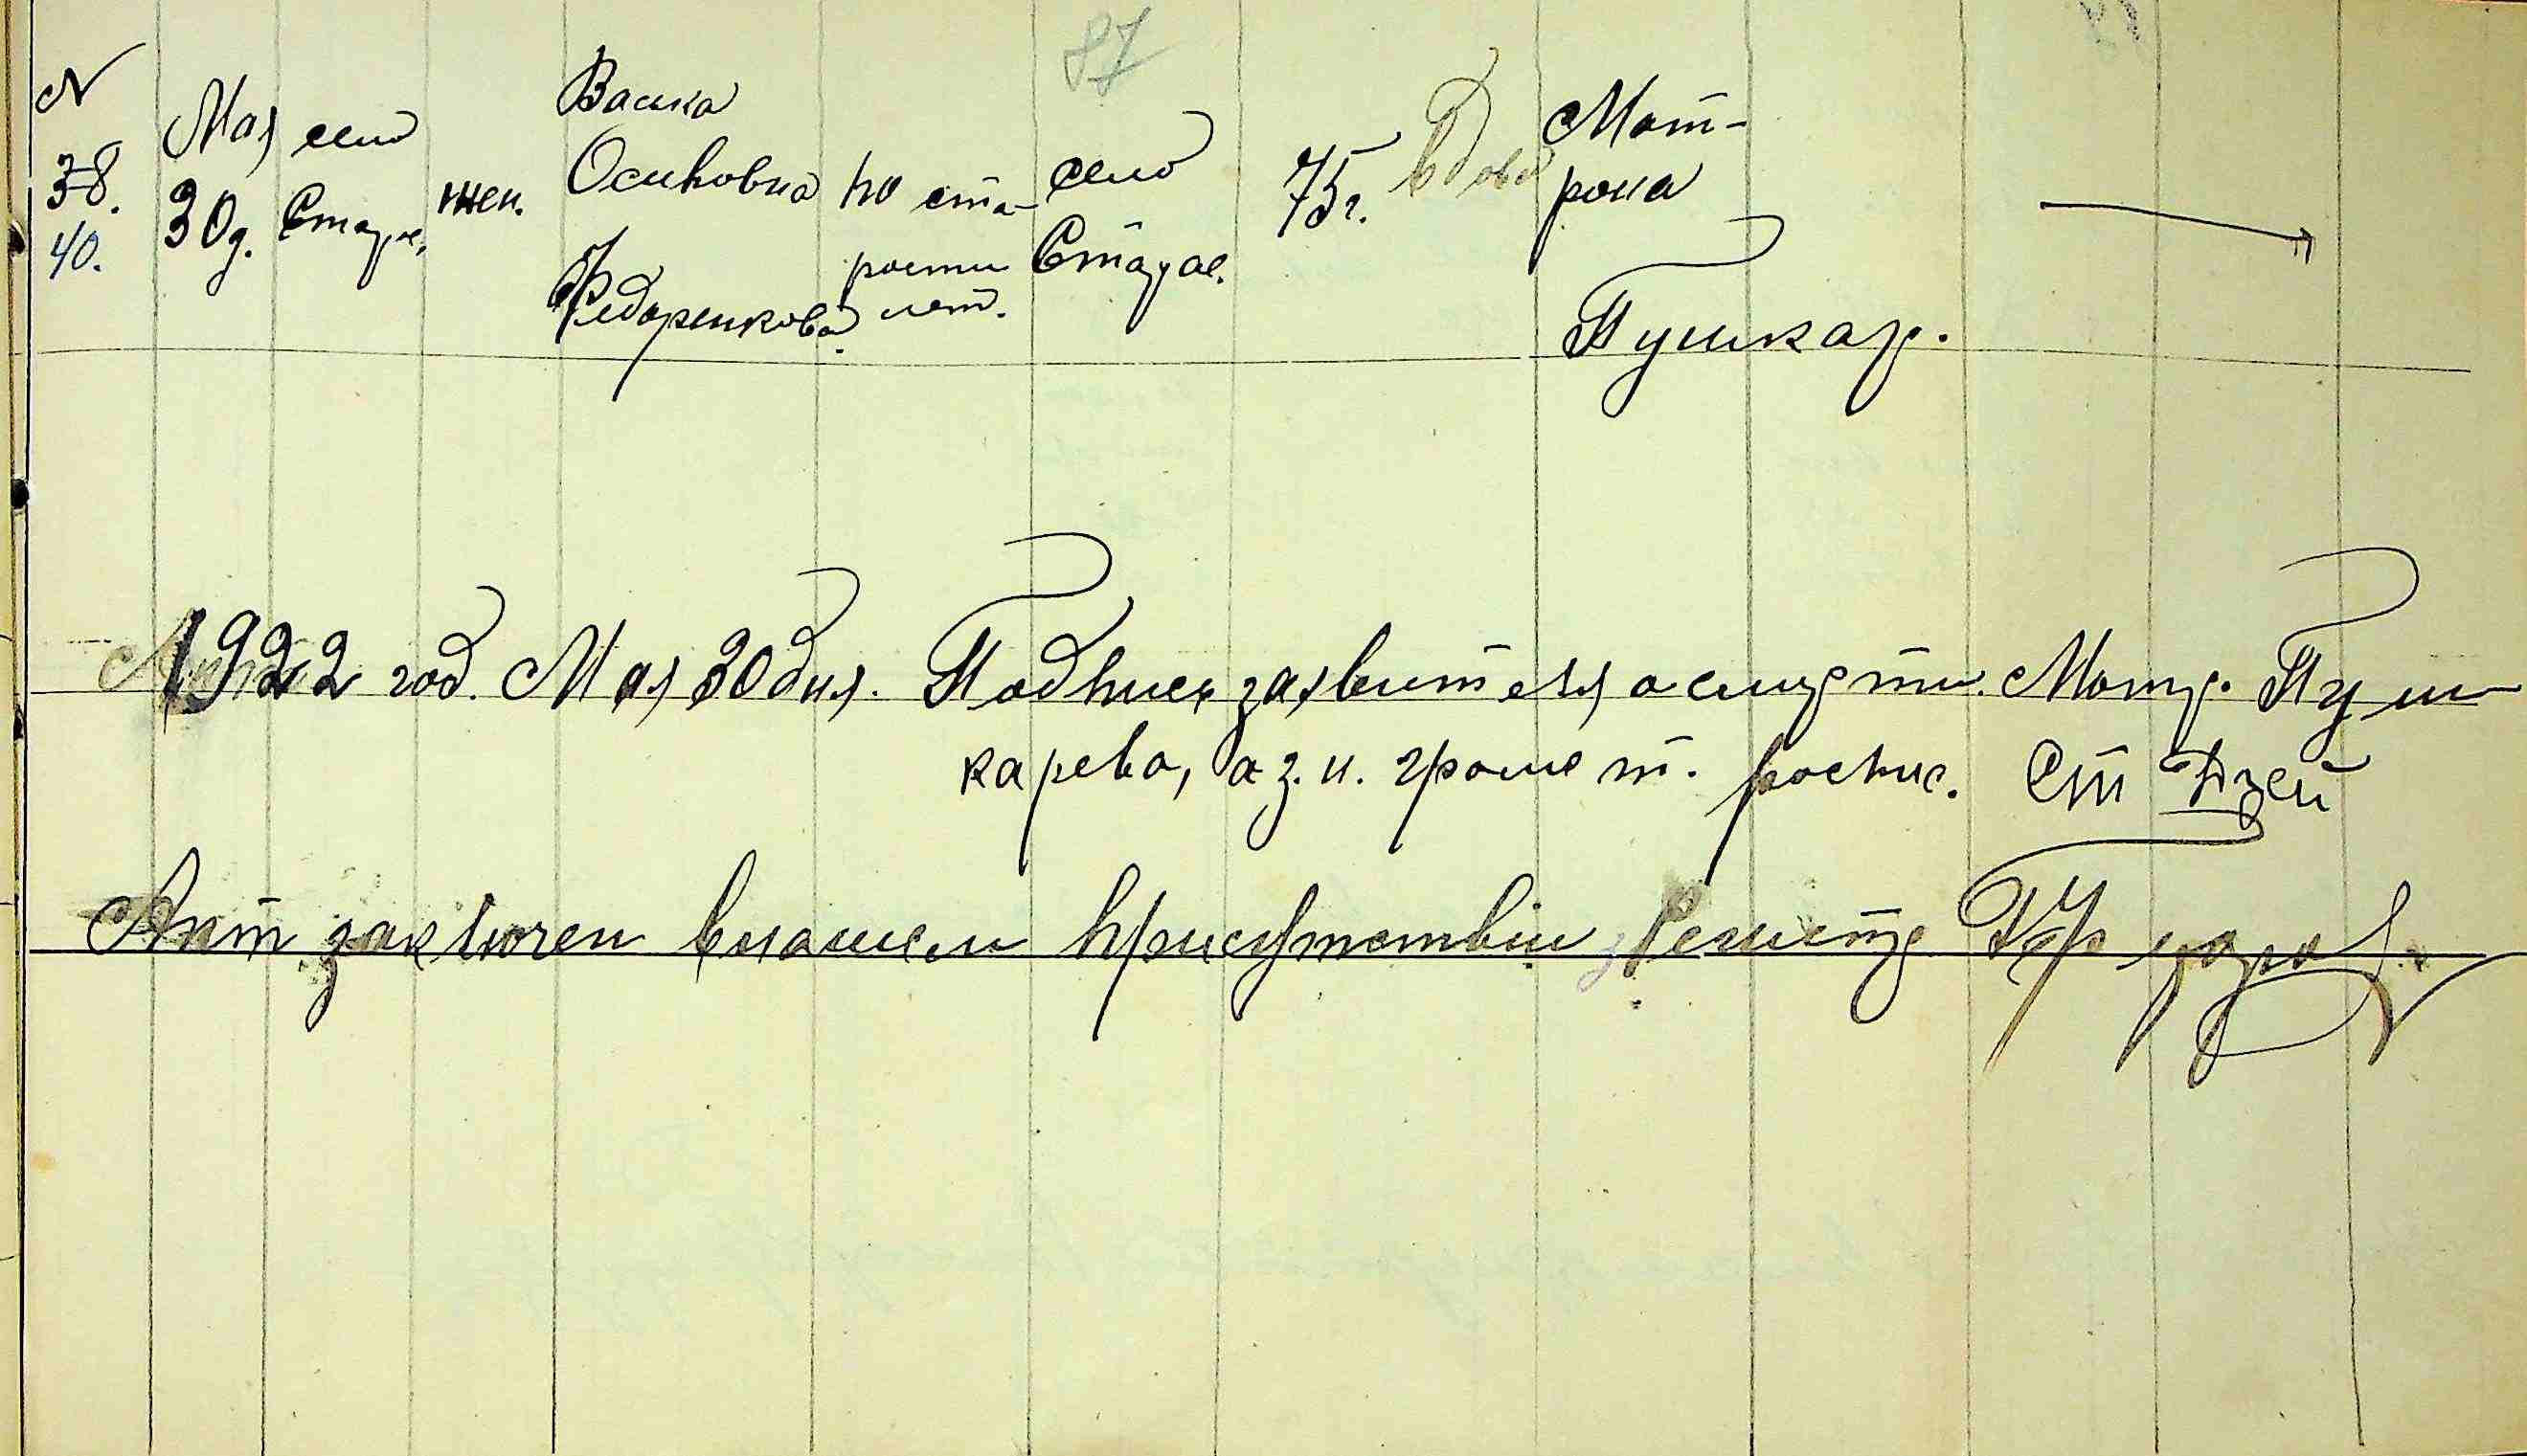 87
N
38.
40.
Мая
30д.
село
Старос.
жен.
Васка
Осиповна
Федоренкова
по ста-
рости
лет.
село
Старое.
75г.
вдова
Мот-
рона
Пушкар.
1922 год. Мая 30 дня. Подпись заявителя о смерти. Мотр. Пуш
карева, а з.н. грамот. роспис. Ст
Акт заключен в нашем присутствии